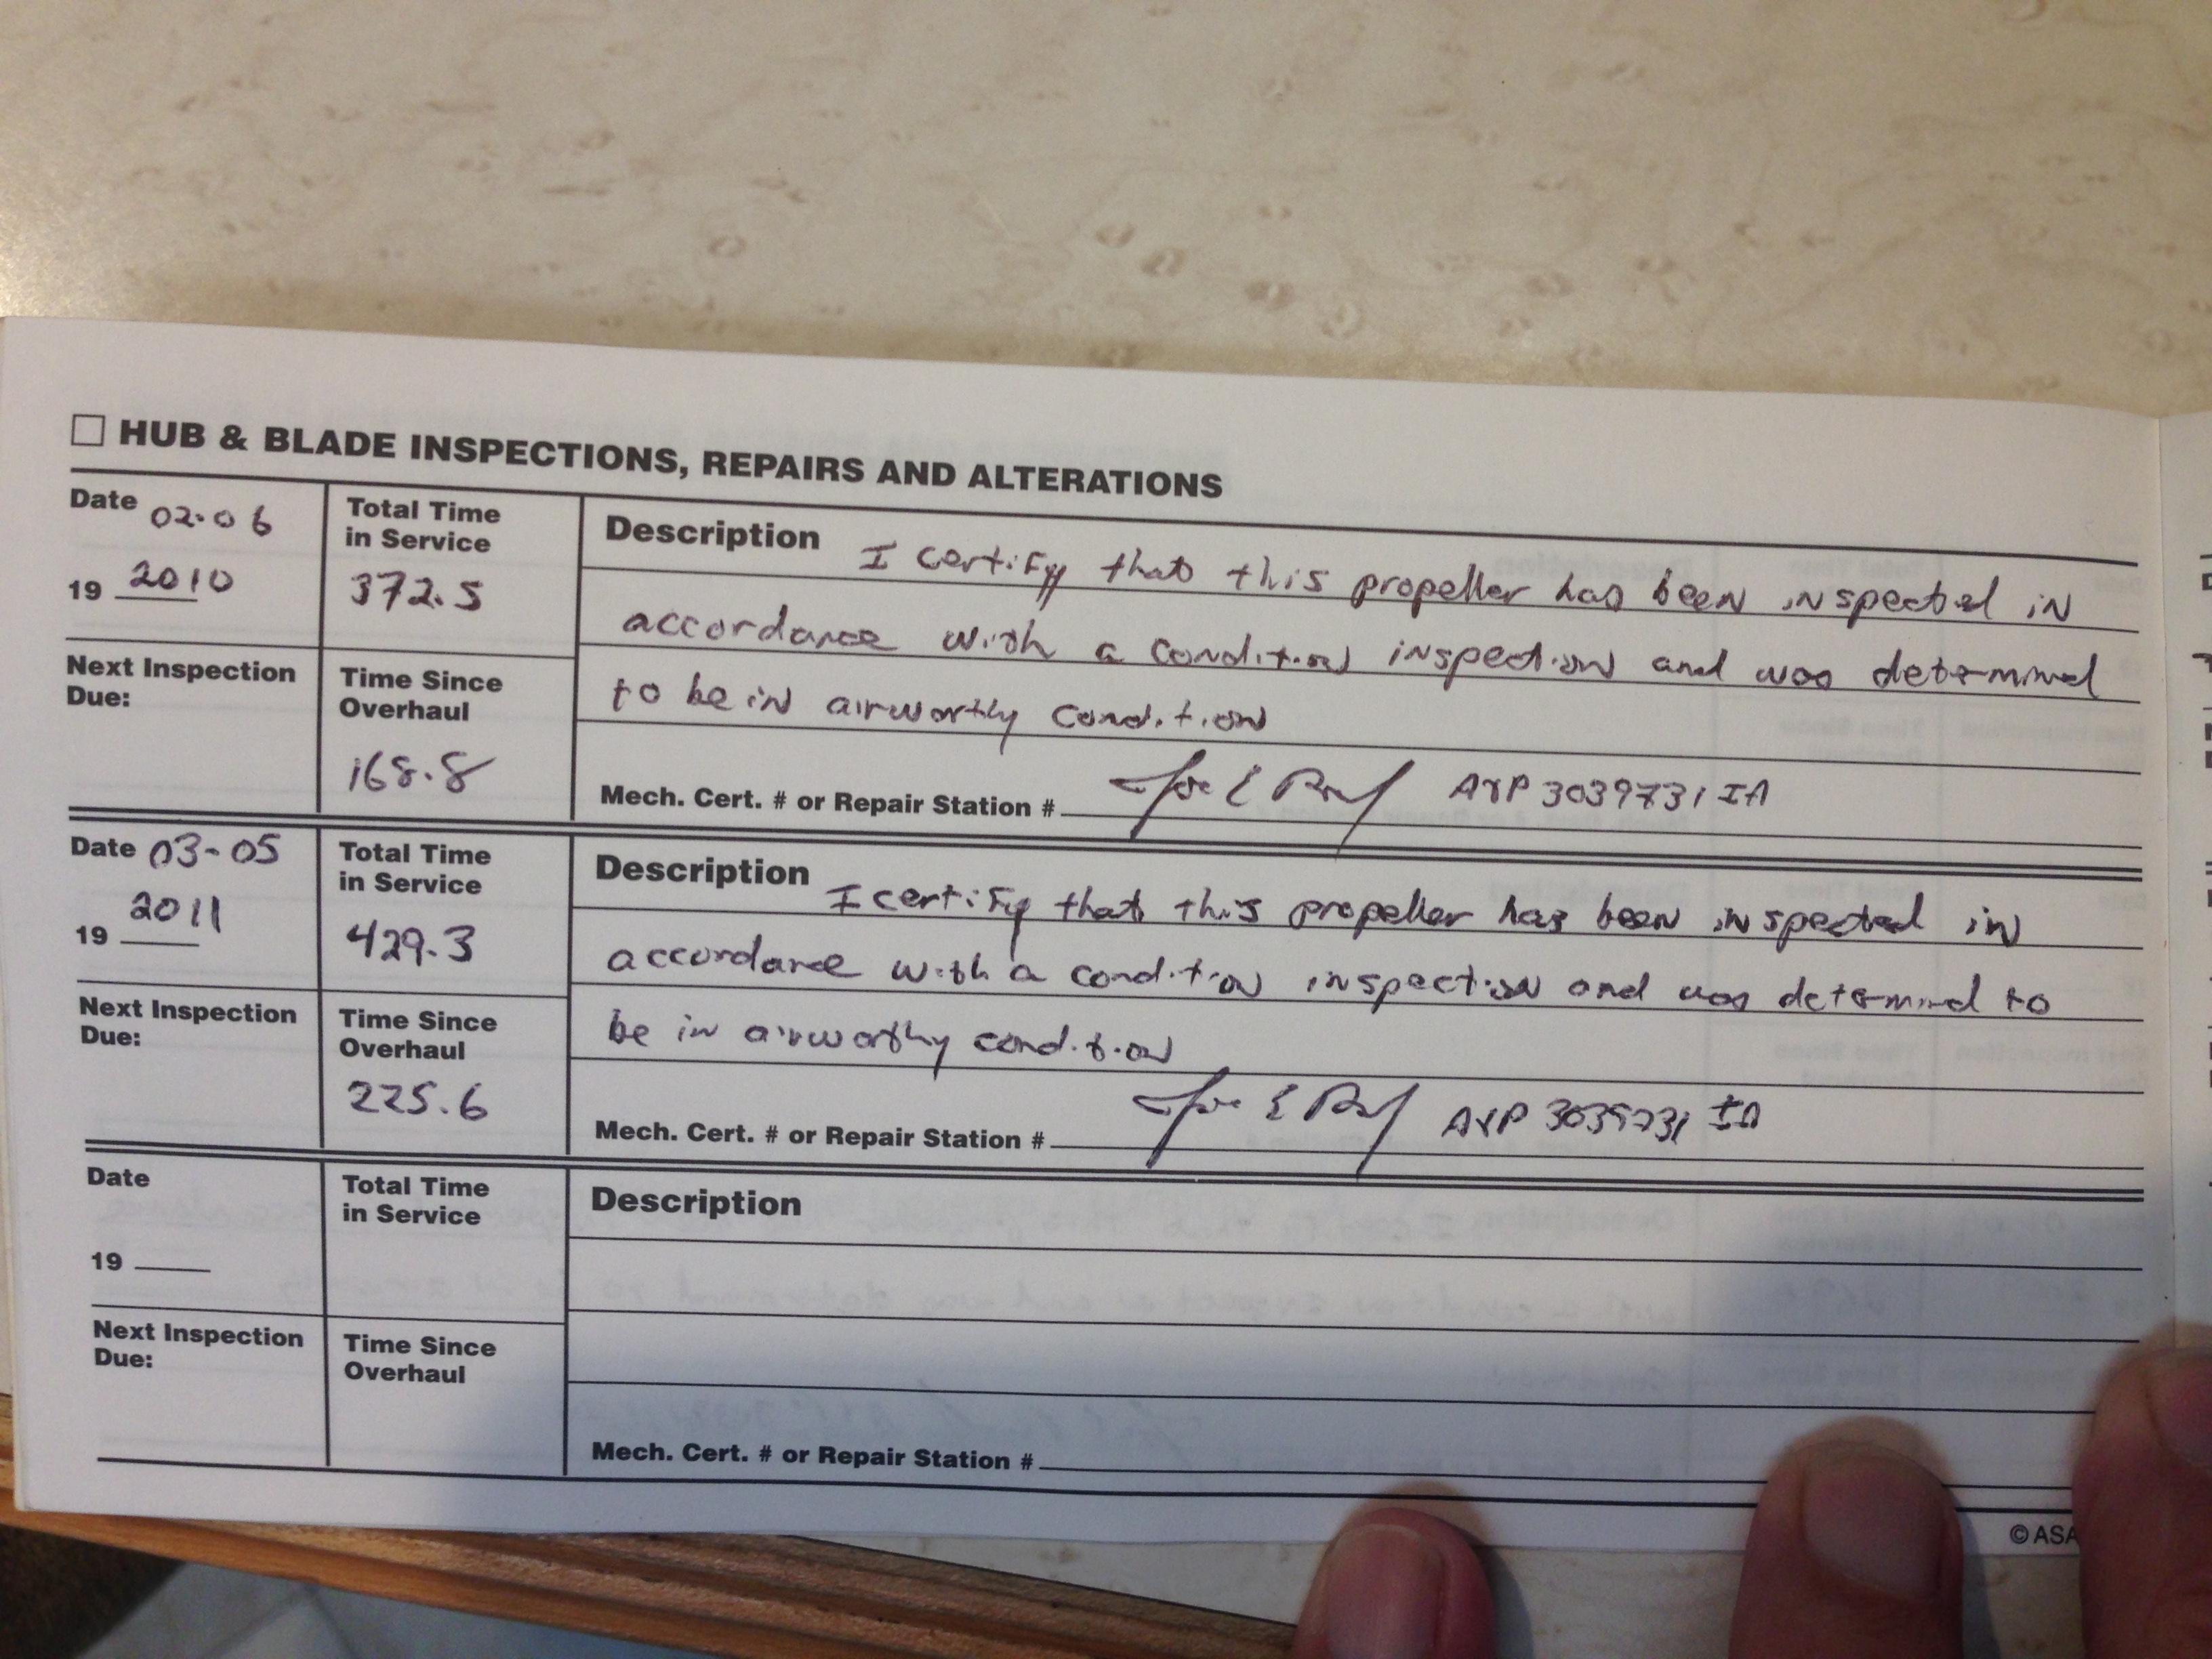 ☐ HUB & BLADE INSPECTIONS, REPAIRS AND ALTERATIONS
Date 02-06
19 2010
Total Time
in Service
372.5
Description I certify that this propeller has been inspected in
accordance with a condition inspection and was determined
to be in airworthy condition
Next Inspection
Due:
Time Since
Overhaul
168.8
Mech. Cert. # or Repair Station # Joe E A&P 3039731 IA
Date 03-05
19 2011
Total Time
in Service
429.3
Description I certify that this propeller has been inspected in
accordance with a condition inspection and was determined to
be in airworthy condition
Next Inspection
Due:
Time Since
Overhaul
225.6
Mech. Cert. # or Repair Station # Joe E A&P 3039731 IA
Date
19
Total Time
in Service
Description
Next Inspection
Due:
Time Since
Overhaul
Mech. Cert. # or Repair Station #
© ASA